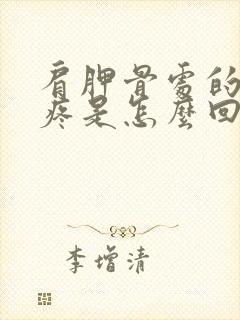 肩胛骨處的
疼是怎麼回
李增清